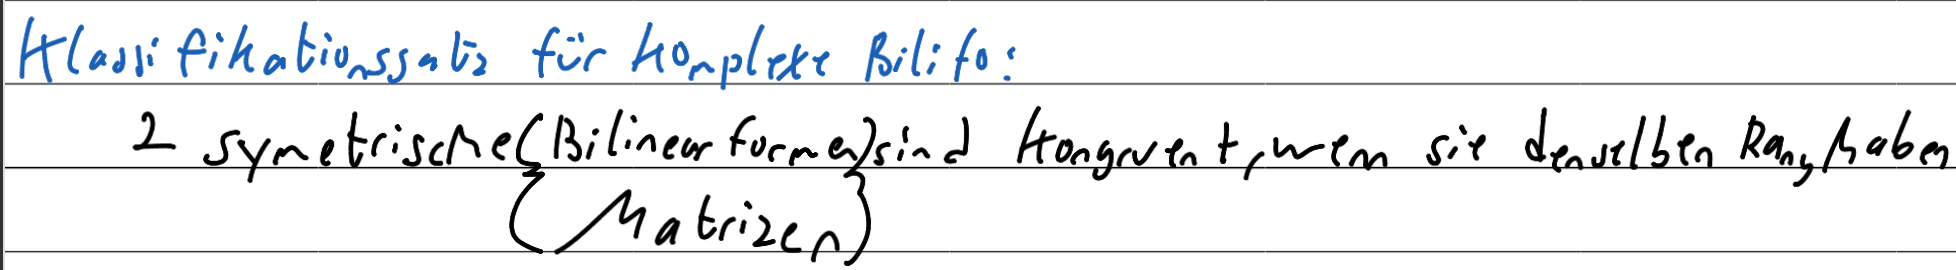 Klassifikationssatz für komplexe Bilifo:
2 symetrische {Bilinearformen} sind kongruent, wenn sie denselben Rang haben
{Matrizen}